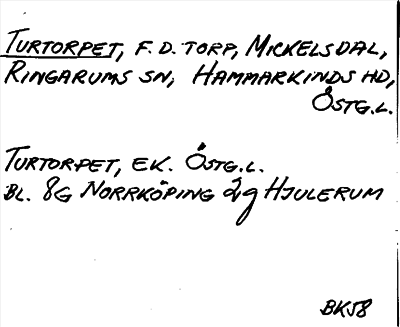 TURTORPET, F. D. TORP, MICKELSDAL,
RINGARUMS SN, HAMMARKINDS HD,
ÖSTG.L.
TURTORPET, EK. ÖSTG.L.
BL. 8G NORRKÖPING 2g HJULERUM
BK58